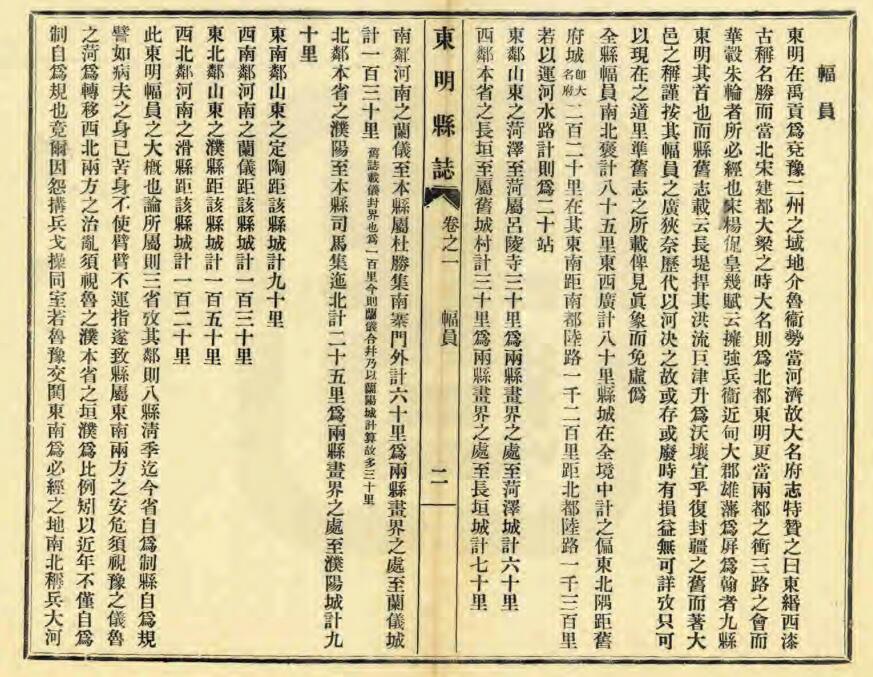 幅員
東明在禹貢爲兗豫二州之域地介魯衞勢當河濟故大名府志特贊之曰東緡西漆
古稱名勝而當北宋建都大梁之時大名則爲北都東明更當兩都之衝三路之會而
華轂朱輪者所必經也宋楊侃皇幾賦云擁強兵衞近甸大郡雄藩爲屏爲翰者九縣
東明其首也而縣舊志載云長堤捍其洪流巨津升爲沃壤宜乎復封疆之舊而著大
邑之稱謹按其幅員之廣狹奈歷代以河决之故或存或廢時有損益無可詳攷只可
以現在之道里準舊志之所載俾見眞象而免虛僞
全縣幅員南北袤計八十五里東西廣計八十里縣城在全境中計之偏東北隅距舊
府城卽大名府二百二十里在其東南距南都陸路一千二百里距北都陸路一千三百里
若以運河水路計則爲二十站
東鄰山東之菏澤至菏屬呂陵寺三十里爲兩縣畫界之處至菏澤城計六十里
西鄰本省之長垣至屬舊城村計三十里爲兩縣畫界之處至長垣城計七十里
東明縣誌 卷之一 幅員 二
南鄰河南之蘭儀至本縣屬杜勝集南寨門外計六十里爲兩縣畫界之處至蘭儀城
計一百三十里舊誌載儀封界也爲一百里今則蘭儀合幷乃以蘭陽城計算故多三十里
北鄰本省之濮陽至本縣司馬集迤北計二十五里爲兩縣畫界之處至濮陽城計九
十里
東南鄰山東之定陶距該縣城計九十里
西南鄰河南之蘭儀距該縣城計一百三十里
東北鄰山東之濮縣距該縣城計一百五十里
西北鄰河南之滑縣距該縣城計一百二十里
此東明幅員之大槪也論所屬則三省攷其鄰則八縣淸季迄今省自爲制縣自爲規
譬如病夫之身已苦身不使臂臂不運指遂致縣屬東南兩方之安危須視豫之儀魯
之菏爲轉移西北兩方之治亂須視魯之濮本省之垣濮爲比例矧以近年不僅自爲
制自爲規也竟爾因怨搆兵戈操同室若魯豫交鬨東南爲必經之地南北稱兵大河